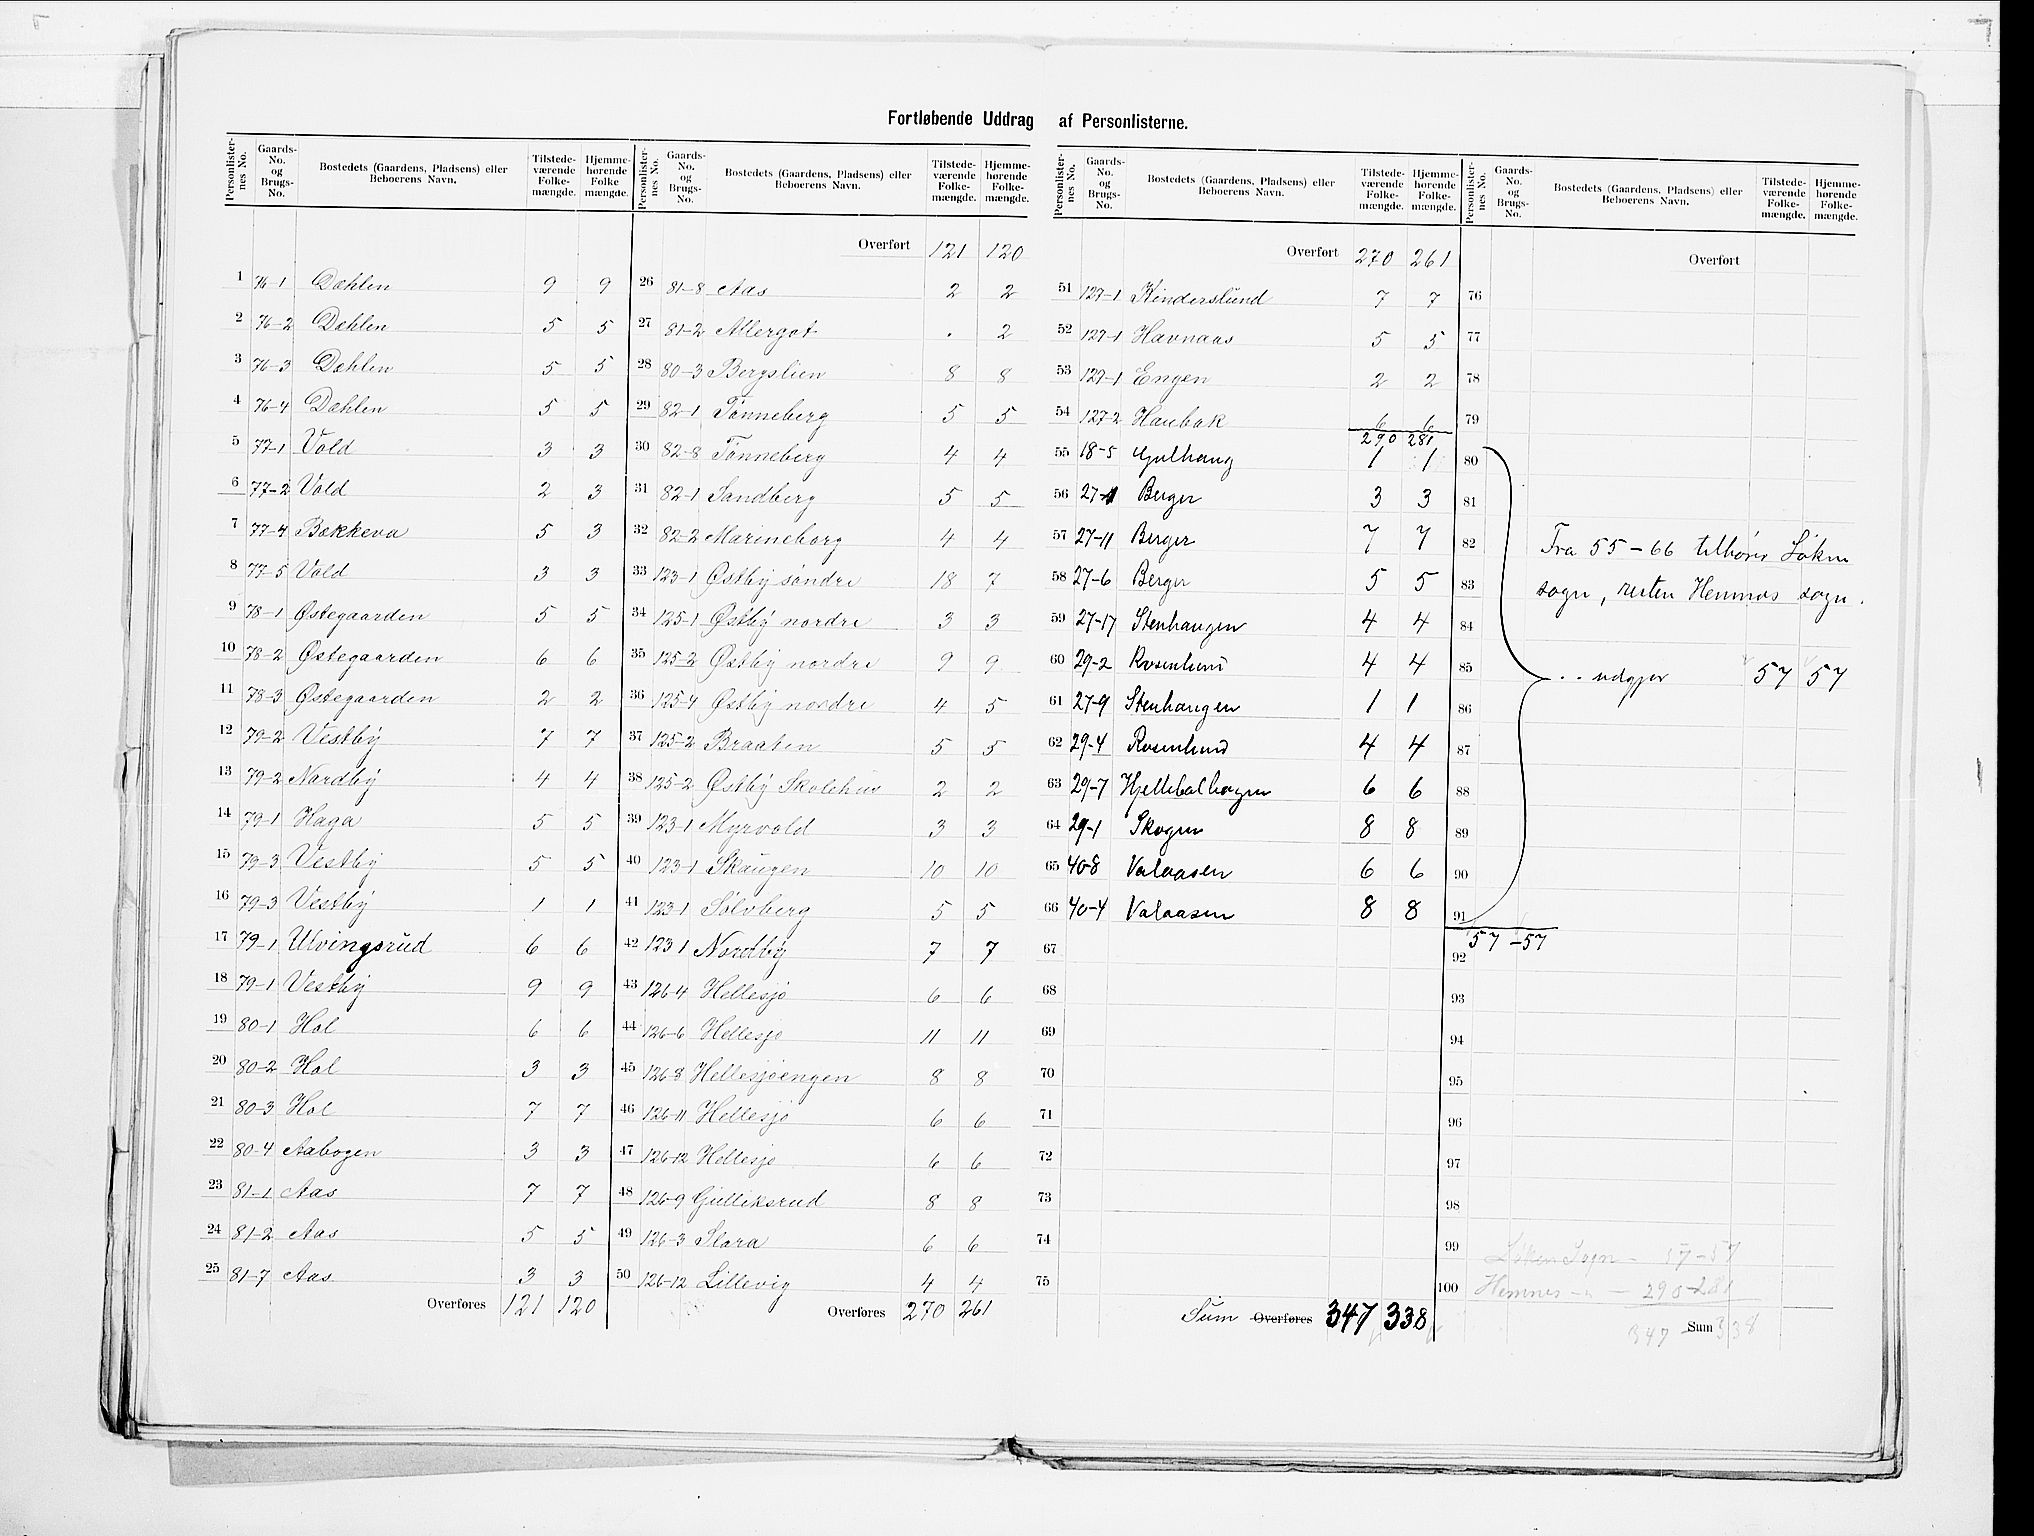 Fortløbende Uddrag af Personlisterne.
Personlister-nes No. Gaards-No. og Brugs-No. Bostedets (Gaardens, Pladsens) eller Beboerens Navn. Tilstede-værende Folke-mængde. Hjemme-hørende Folke mængde.
1 76-1 Dæhlen 9 9
2 76-2 Dæhlen 5 5
3 76-3 Dæhlen 5 5
4 76-4 Dæhlen 5 5
5 77-1 Vold 3 3
6 77-2 Vold 2 3
7 77-4 Bækkeva 5 3
8 77-5 Vold 3 3
9 78-1 Østegaarden 5 5
10 78-2 Østegaarden 6 6
11 78-3 Østegaarden 2 2
12 79-2 Vestby 7 7
13 79-2 Nordby 4 4
14 79-1 Haga 5 5
15 79-3 Vestby 5 5
16 79-3 Vestby 1 1
17 79-1 Ulvingsrud 6 6
18 79-1 Vestby 9 9
19 80-1 Hol 6 6
20 80-2 Hol 3 3
21 80-3 Hol 7 7
22 80-4 Aabogen 3 3
23 81-1 Aas 7 7
24 81-2 Aas 5 5
25 81-7 Aas 3 3
Overføres 121 120
Personlister-nes No. Gaards-No. og Brugs-No. Bostedets (Gaardens, Pladsens) eller Beboerens Navn. Tilstede-værende Folke-mængde. Hjemme-hørende Folke-mængde.
Overført 121 120
26 81-8 Aas 2 2
27 81-2 Allergot . 2
28 80-3 Bergslien 8 8
29 82-1 Tønneberg 5 5
30 82-8 Tønneberg 4 4
31 82-1 Sandberg 5 5
32 82-2 Marineborg 4 4
33 123-1 Østby søndre 18 7
34 125-1 Østby nordre 3 3
35 125-2 Østby nordre 9 9
36 125-4 Østby nordre 4 5
37 125-2 Braaten 5 5
38 125-2 Østby Skolehus 2 2
39 123-1 Myrvold 3 3
40 123-1 Skaugen 10 10
41 123-1 Sølvberg 5 5
42 123 1 Nordby 7 7
43 126-4 Hellesjø 6 6
44 126-6 Hellesjø 11 11
45 126-8 Hellesjøengen 8 8
46 126-11 Hellesjø 6 6
47 126-12 Hellesjø 6 6
48 126-9 Gulliksrud 8 8
49 126-3 Slara 6 6
50 126-12 Lillevig 4 4
Overføres 270 261
Personlister-nes No. Gaards-No. og Brugs-No. Bostedets (Gaardens, Pladsens) eller Beboerens Navn. Tilstede-værende Folke-mængde. Hjemme-hørende Folke-mængde.
Overført 270 261
51 127-1 Kinderslund 7 7
52 127-1 Havnaas 5 5
53 127-1 Engen 2 2
54 127-2 Haubæk 6 6
290 281
55 18-5 Gulhaug 1 1
56 27-1 Berger 3 3
57 27-11 Berger 7 7
58 27-6 Berger 5 5
59 27-17 Stenhaugen 4 4
60 29-2 Rosenlund 4 4
61 27-9 Stenhaugen 1 1
62 29-4 Rosenlund 4 4
63 29-7 Hjellebølhagen 6 6
64 29-1 Skogen 8 8
65 40-8 Valaasen 6 6
66 40-4 Valaasen 8 8
67
68
69
70
71
72
73
74
75
Sum Overføres 347 338
Personlister-nes No. Gaards-No. og Brugs-No. Bostedets (Gaardens, Pladsens) eller Beboerens Navn. Tilstede-værende Folke-mængde. Hjemme-hørende Folke-mængde.
Overført
76
77
78
79
80
81
82 Fra 55-66 tilhører Løken
83 sogn, resten Hemnæs sogn.
84
85 .. udgjør 57 57
86
87
88
89
90
91
57 - 57
92
93
94
95
96
97
98
99 Løken Sogn - 57-57
100 Hemnes - " - 290-281
347 - Sum 338